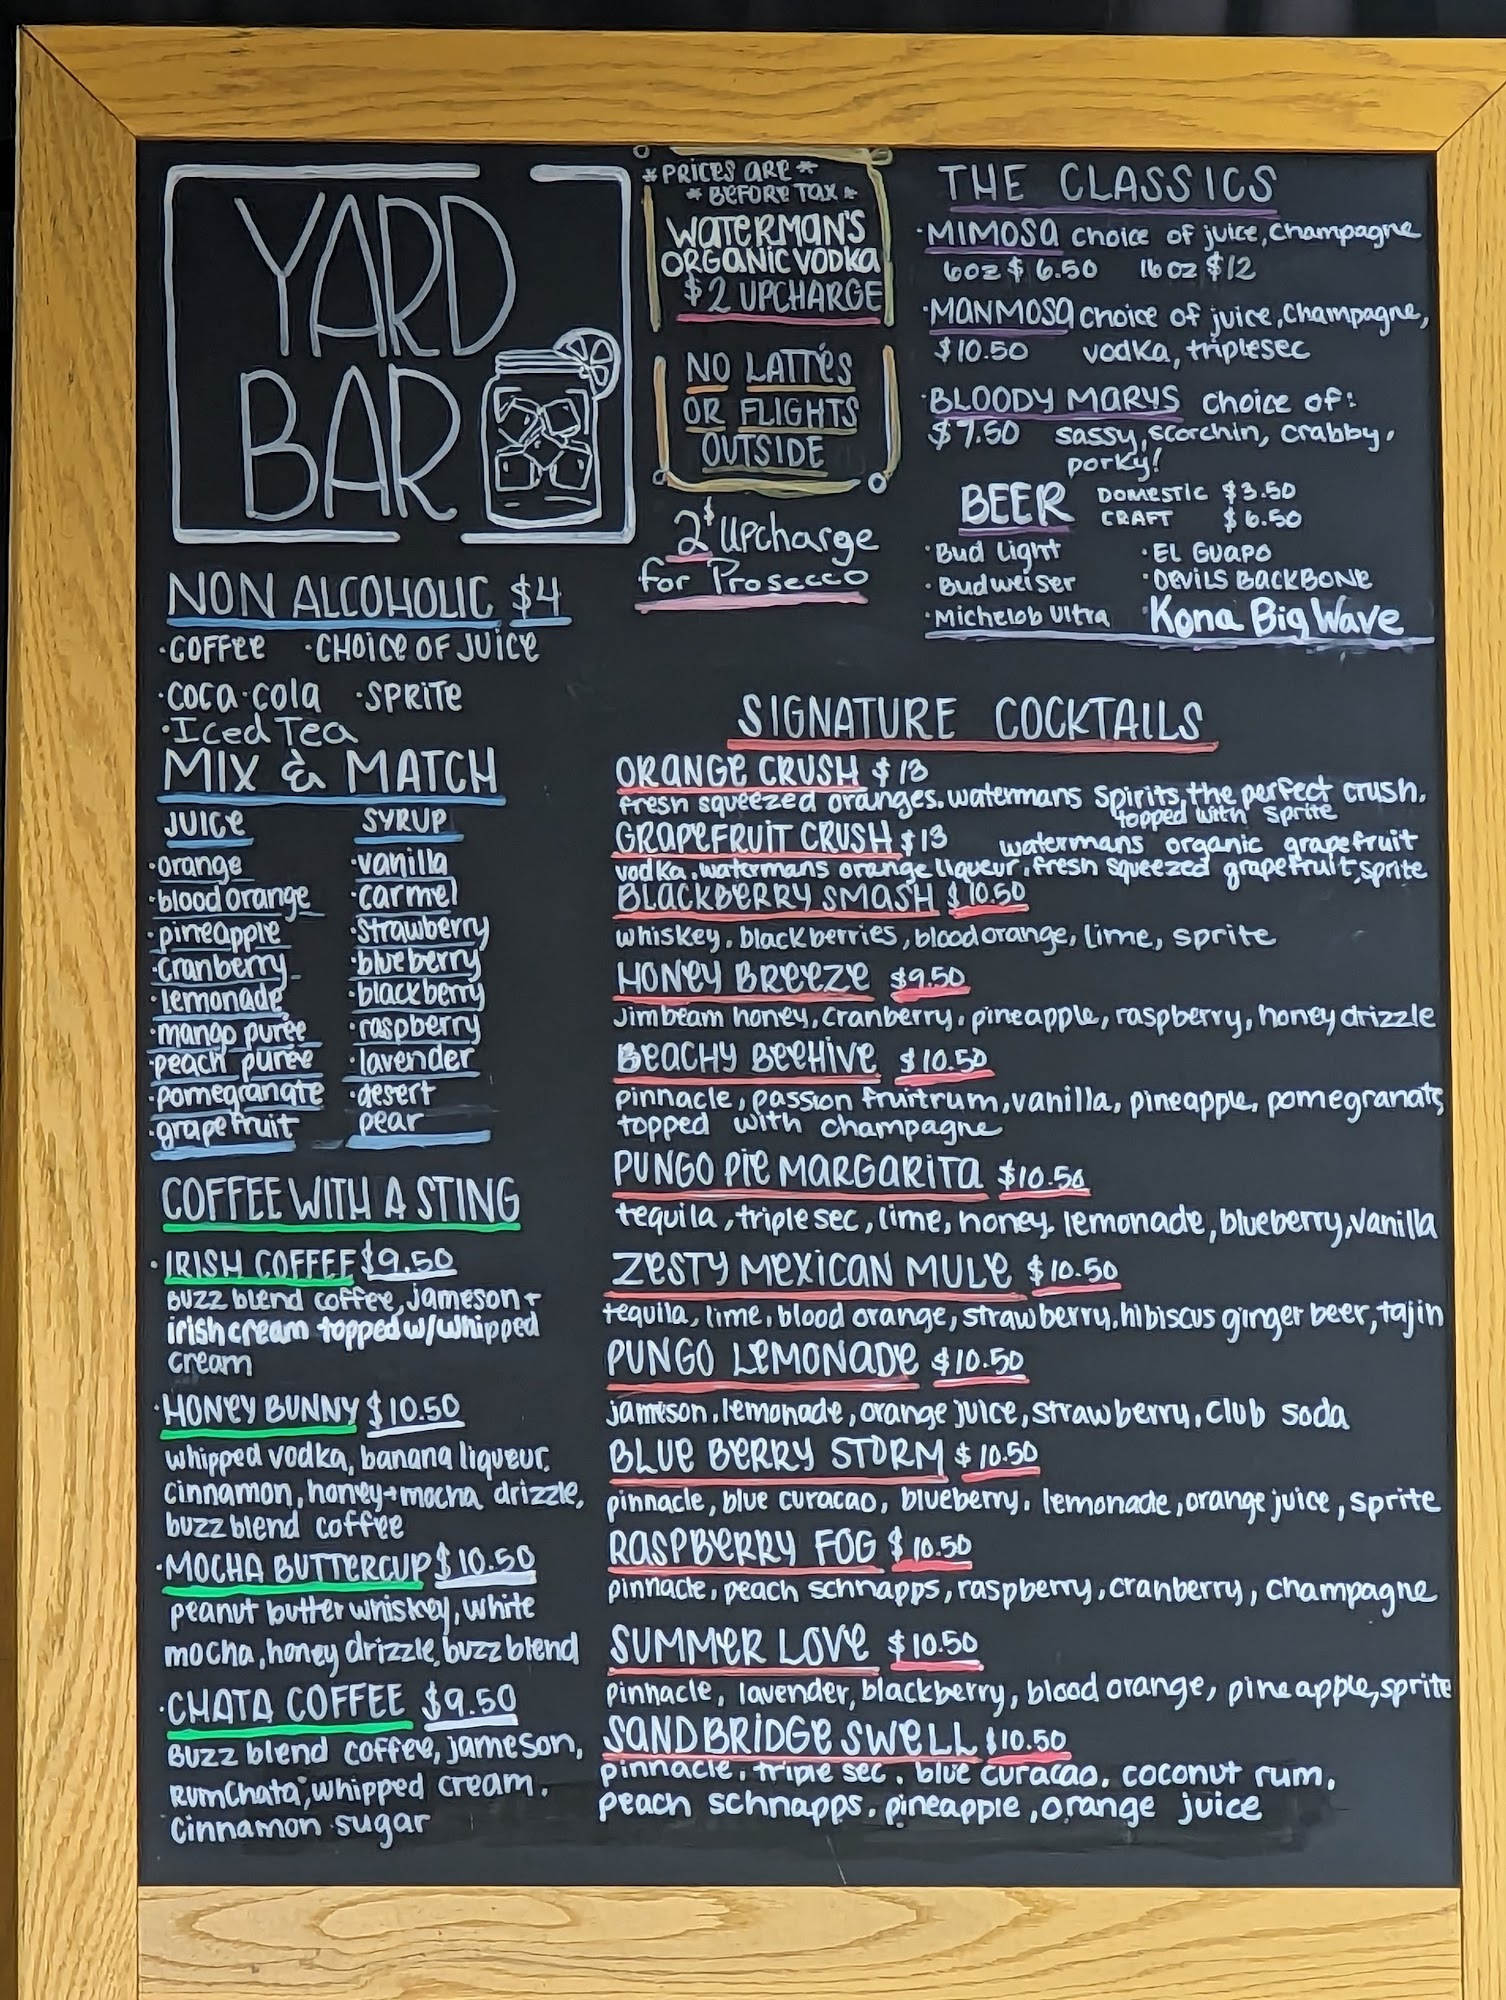 YARD
BAR
* PRICES ARE *
* BEFORE TAX *
WATERMAN'S
ORGANIC VODKA
$2 UPCHARGE
NO LATTÉS
OR FLIGHTS
OUTSIDE
2$ Upcharge
for Prosecco
THE CLASSICS
·MIMOSA choice of juice, champagne
6oz $6.50 16oz $12
·MANMOSA choice of juice, champagne,
$10.50 vodka, triplesec
·BLOODY MARYS choice of:
$7.50 sassy, scorchin, crabby,
porky!
BEER DOMESTIC $3.50
CRAFT $6.50
·Bud Light ·EL GUAPO
·Budweiser ·DEVILS BACKBONE
·Michelob Ultra Kona Big Wave
NON ALCOHOLIC $4
·COFFEE ·CHOICE OF JUICE
·COCA-COLA ·SPRITE
·Iced Tea
MIX & MATCH
JUICE SYRUP
·orange ·vanilla
·blood orange ·carmel
·pineapple ·strawberry
·cranberry ·blueberry
·lemonade ·blackberry
·mango purée ·raspberry
·peach purée ·lavender
·pomegranate ·desert
·grapefruit pear
COFFEE WITH A STING
·IRISH COFFEE $9.50
Buzz blend coffee, jameson +
irish cream topped w/whipped
cream
·HONEY BUNNY $10.50
whipped vodka, banana liqueur,
cinnamon, honey + mocha drizzle,
buzz blend coffee
·MOCHA BUTTERCUP $10.50
peanut butter whiskey, white
mocha, honey drizzle, buzz blend
·CHATA COFFEE $9.50
Buzz blend coffee, jameson,
RumChata, whipped cream,
cinnamon sugar
SIGNATURE COCKTAILS
ORANGE CRUSH $13
fresh squeezed oranges, watermans spirits, the perfect crush,
topped with sprite
GRAPEFRUIT CRUSH $13 watermans organic grapefruit
vodka, watermans orange liqueur, fresh squeezed grapefruit, sprite
BLACKBERRY SMASH $10.50
whiskey, blackberries, blood orange, lime, sprite
HONEY BREEZE $9.50
Jimbeam honey, cranberry, pineapple, raspberry, honey drizzle
BEACHY BEEHIVE $10.50
pinnacle, passion fruit rum, vanilla, pineapple, pomegranate
topped with champagne
PUNGO PIE MARGARITA $10.50
tequila, triple sec, lime, honey, lemonade, blueberry, vanilla
ZESTY MEXICAN MULE $10.50
tequila, lime, blood orange, strawberry, hibiscus ginger beer, tajin
PUNGO LEMONADE $10.50
jameson, lemonade, orange juice, strawberry, club soda
BLUE BERRY STORM $10.50
pinnacle, blue curacao, blueberry, lemonade, orange juice, sprite
RASPBERRY FOG $10.50
pinnacle, peach schnapps, raspberry, cranberry, champagne
SUMMER LOVE $10.50
pinnacle, lavender, blackberry, blood orange, pineapple, sprite
SANDBRIDGE SWELL $10.50
pinnacle, triple sec, blue curacao, coconut rum,
peach schnapps, pineapple, orange juice